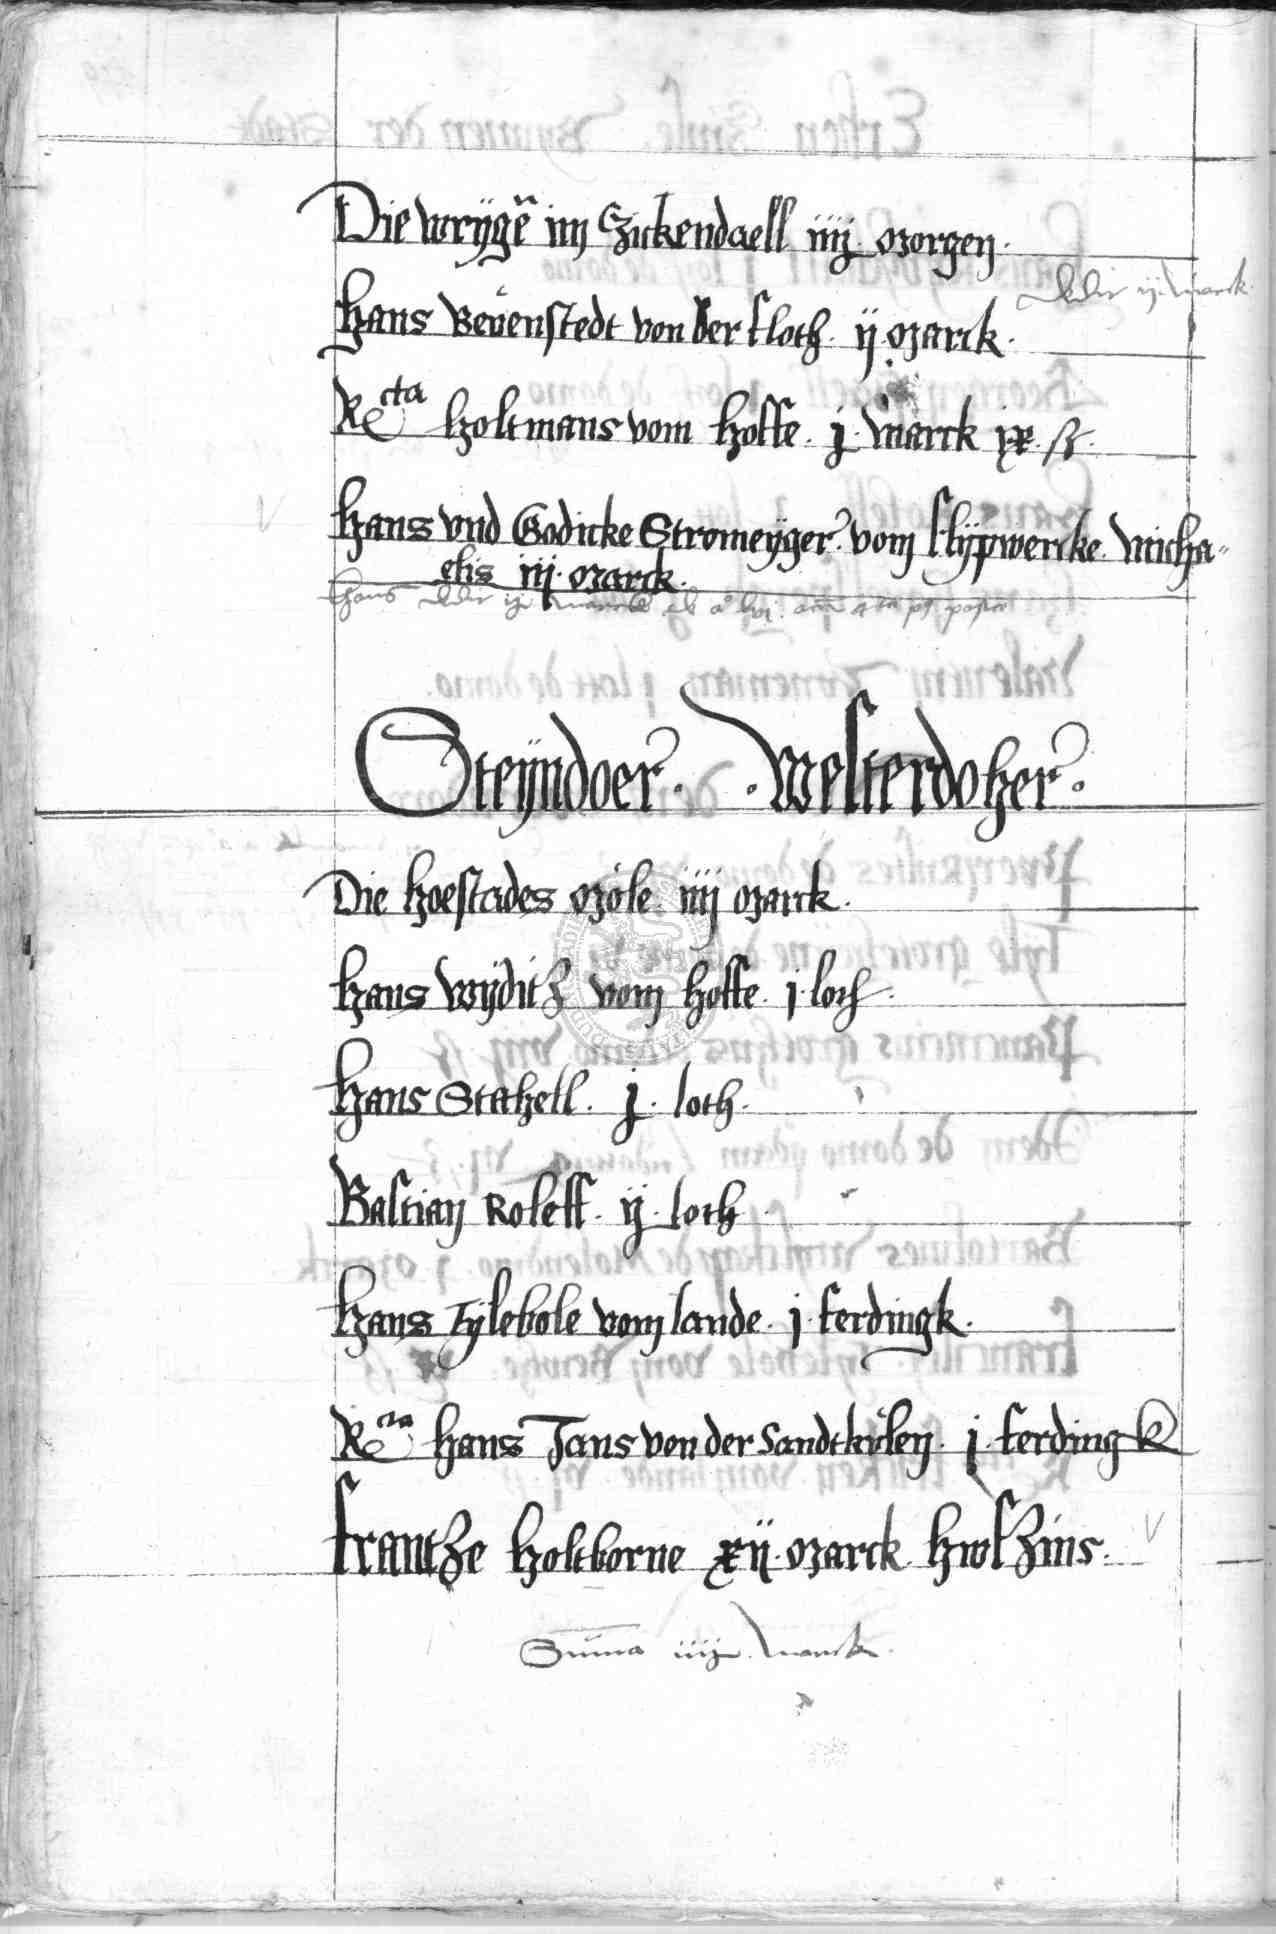 Die wrijgē im Zickendaell iiij morgen.
dedit ij marck
Hans Bevenstedt von der floth. ij marck.
Re cta Holtmans vom hoffe. j. marck ix ß.
Hans vnd Godicke Stromeyger. vom slijpwercke. Micha-
elis iij. marck.
Hans dedit iij marck
Steijndoer. Westerdoher.
Die hoestades mole iiij marck.
Hans Wijditz vom hoffe. j. loth.
Hans Stahell. j. loth.
Bastian Roleff. ij. loth
Hans Tylebole vom lande. j. ferdingk.
Hans Jans von der Sandtkulen. j. ferdingk
Frantze Holtborne xij. marck
Summa iiij marck.